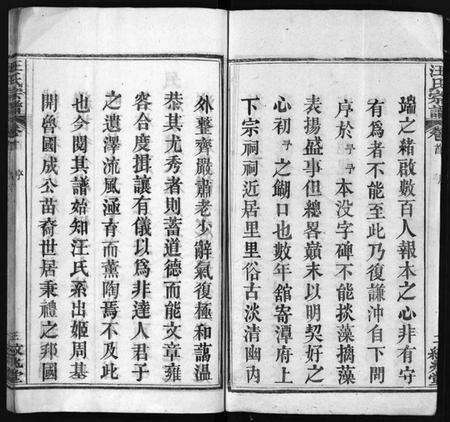 汪氏宗譜
卷首
序
端之緒啟數百人報本之心非有守
有爲者不能至此乃復謙沖自下問
序於予予本没字碑不能掞藻摛藻
表揚盛事但總畧巔末以明契好之
心初予之餬口也數年舘寄潭府上
下宗祠祠近居里里俗古淡清幽內
外整齊嚴肅老少辭氣復極和藹温
恭其尤秀者則蓄道德而能文章雍
客合度揖讓有儀以爲非達人君子
之遺澤流風涵育而薰陶焉不及此
也今閱其譜始知汪氏系出姬周基
開魯國成公苗裔世居秉禮之邦國
汪氏宗譜
卷首
序